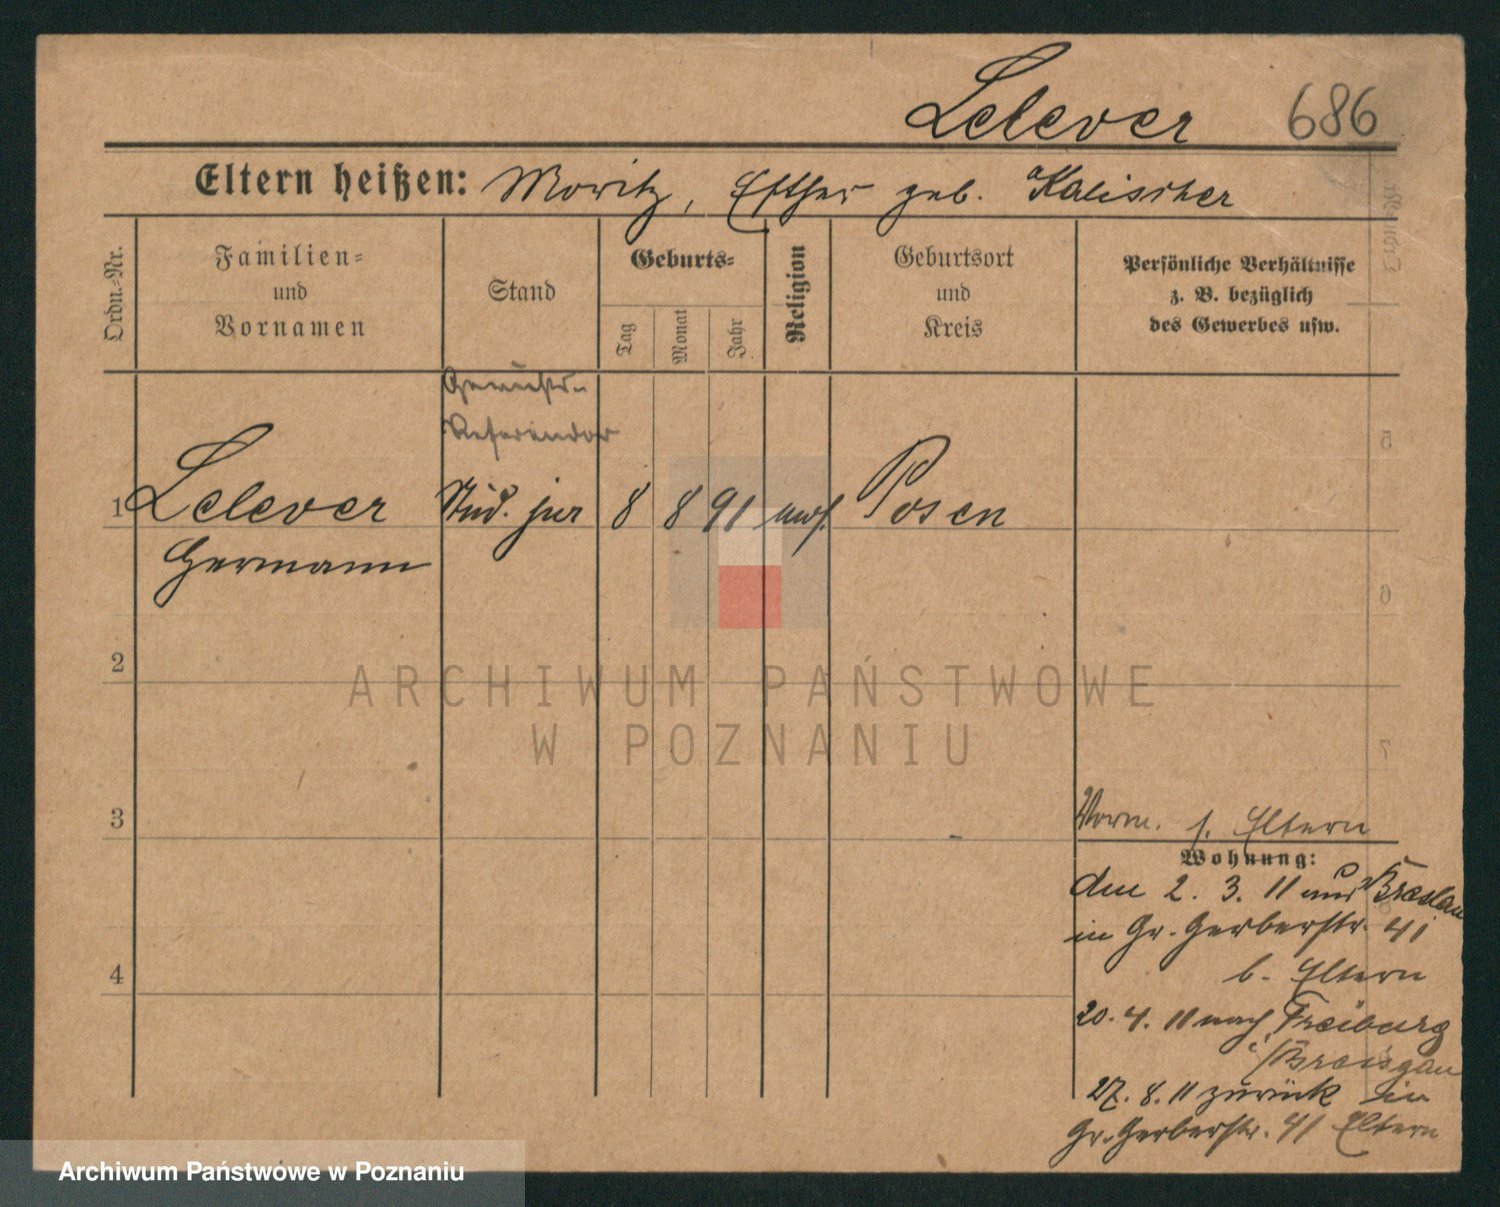 Lelever 686
Eltern heißen: Moritz, Esther geb. Kalischer
Ordn.-Nr.
Familien-
und
Vornamen
Stand
Geburts-
Tag
Monat
Jahr
Religion
Geburtsort
und
Kreis
Persönliche Verhältnisse
z. B. bezüglich
des Gewerbes usw.
Gerichts-
Referendar
1 Lelever Stud. jur 8 8 91 mos. Posen
Hermann
2
3
4
Vorm. s. Eltern
Wohnung:
den 2. 3. 11 aus Breslau
in Gr. Gerberstr. 41
b. Eltern
20. 4. 11 nach Freiburg
i/Breisgau
27. 8. 11 zurück in
Gr. Gerberstr. 41 Eltern
5
6
7
8
ARCHIWUM PAŃSTWOWE
W POZNANIU
Archiwum Państwowe w Poznaniu